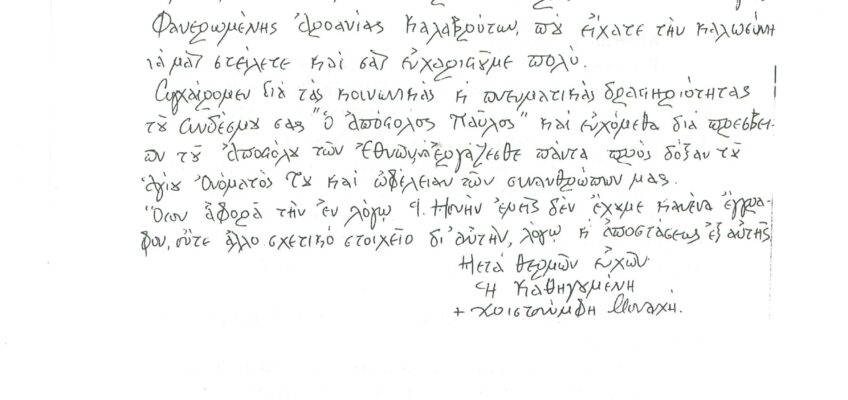 Φανερωμένης Ἀροανίας Καλαβρύτων, πȣ εἴχατε τήν καλωσύνη
νά μᾶς στείλετε καί σᾶς εὐχαριστοῦμε πολύ.
Συγχαίρομεν διά τάς κοινωνικάς κ πνευματικάς δραστηριότητας
τȣ͂ Συνδέσμȣ σας "Ὁ Ἀπόστολος Παῦλος" καί εὐχόμεθα διά πρεσβει-
ῶν τȣ͂ Ἀποστόλȣ τῶν Ἐθνῶν, νά ἐργάζεσθε πάντα πρός δόξαν τȣ͂
Ἁγίȣ Ὀνόματός Τȣ καί ὠφέλειαν τῶν συνανθρώπων μας.
Ὅσον ἀφορᾶ τήν ἐν λόγῳ Ἱ. Μονήν ἐμεῖς δέν ἔχȣμε κανένα ἔγγρα-
φον, οὔτε ἄλλο σχετικό στοιχεῖο δι' αὐτήν, λόγῳ κ ἀποστάσεως ἐξ αὐτῆς
Μετά θερμῶν εὐχῶν
Ἡ Καθηγȣμένη
+ Χριστονύμφη Μοναχή.